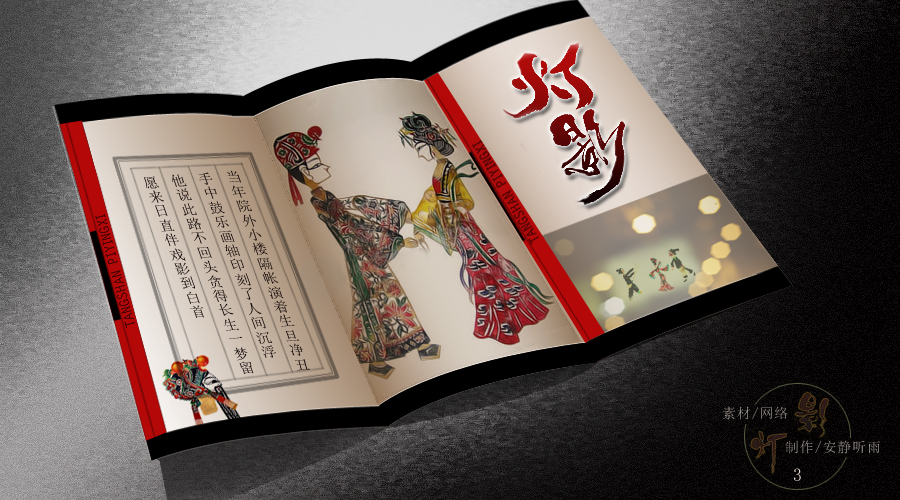 灯影
TANGSHAN PIYINGXI
当年院外小楼隔帐演着生旦净丑
手中鼓乐画轴印刻了人间沉浮
他说此路不回头贪得长生一梦留
愿来日直伴戏影到白首
TANGSHAN PIYINGXI
素材/网络
影
灯
制作/安静听雨
3